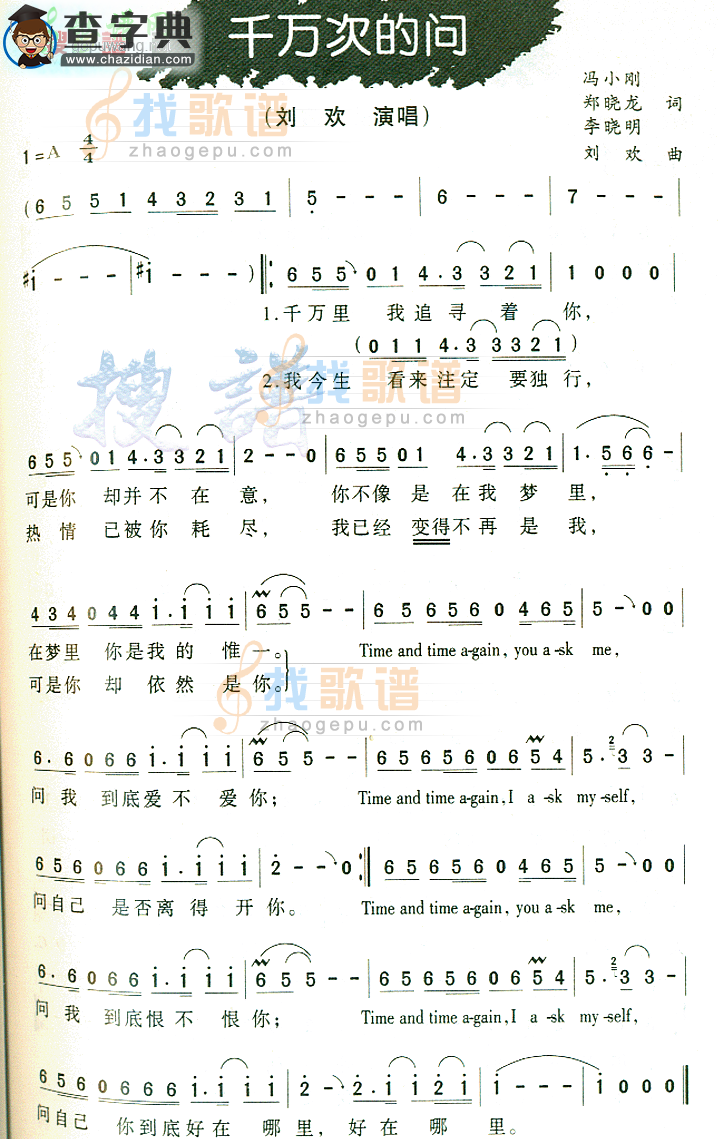 查字典
www.chazidian.com
千万次的问
冯小刚
郑晓龙 词
李晓明
刘 欢 曲
(刘 欢 演唱)
找歌谱
zhaogepu.com
1=A 4/4
(6 5 5 1 4 3 2 3 1 | 5 - - - | 6 - - - | 7 - - - |
#i - - - | #i - - - ) ‖: 6 5 5 0 1 4 . 3 3 3 2 1 | 1 0 0 0 |
1.千万里 我追寻着你,
(0 1 1 4 . 3 3 3 2 1)
搜谱
2.我今生 看来注定 要独行,
找歌谱
zhaogepu.com
6 5 5 0 1 4 . 3 3 3 2 1 | 2 - - 0 | 6 5 5 0 1 4 . 3 3 3 2 1 | 1 . 5 6 6 - |
可是你 却并不在意, 你不像是在我梦里,
热情 已被你耗尽, 我已经 变得不再是我,
4 3 4 0 4 4 i . i i i | 6 5 5 - - | 6 5 6 5 6 0 4 6 5 | 5 - 0 0 |
在梦里 你是我的惟一。 Time and time a-gain, you a-sk me,
可是你 却依然是你。
找歌谱
zhaogepu.com
6 . 6 0 6 6 i . i i i | 6 5 5 - - | 6 5 6 5 6 0 6 5 4 | 5 . 3 3 - |
问我 到底爱不爱你; Time and time a-gain, I a-sk my-self,
6 5 6 0 6 6 i . i i i | 2 - - 0 :‖ 6 5 6 5 6 0 4 6 5 | 5 - 0 0 |
问自己 是否离得开你。 Time and time a-gain, you a-sk me,
6 . 6 0 6 6 i . i i i | 6 5 5 - - | 6 5 6 5 6 0 6 5 4 | 5 . 3 3 - |
问我 到底恨不恨你; Time and time a-gain, I a-sk my-self,
6 5 6 0 6 6 6 i . i i i | 2 - 2 . i i 2 i | i - - - | i 0 0 0 ‖
问自己 你到底好在哪里, 好在哪里。